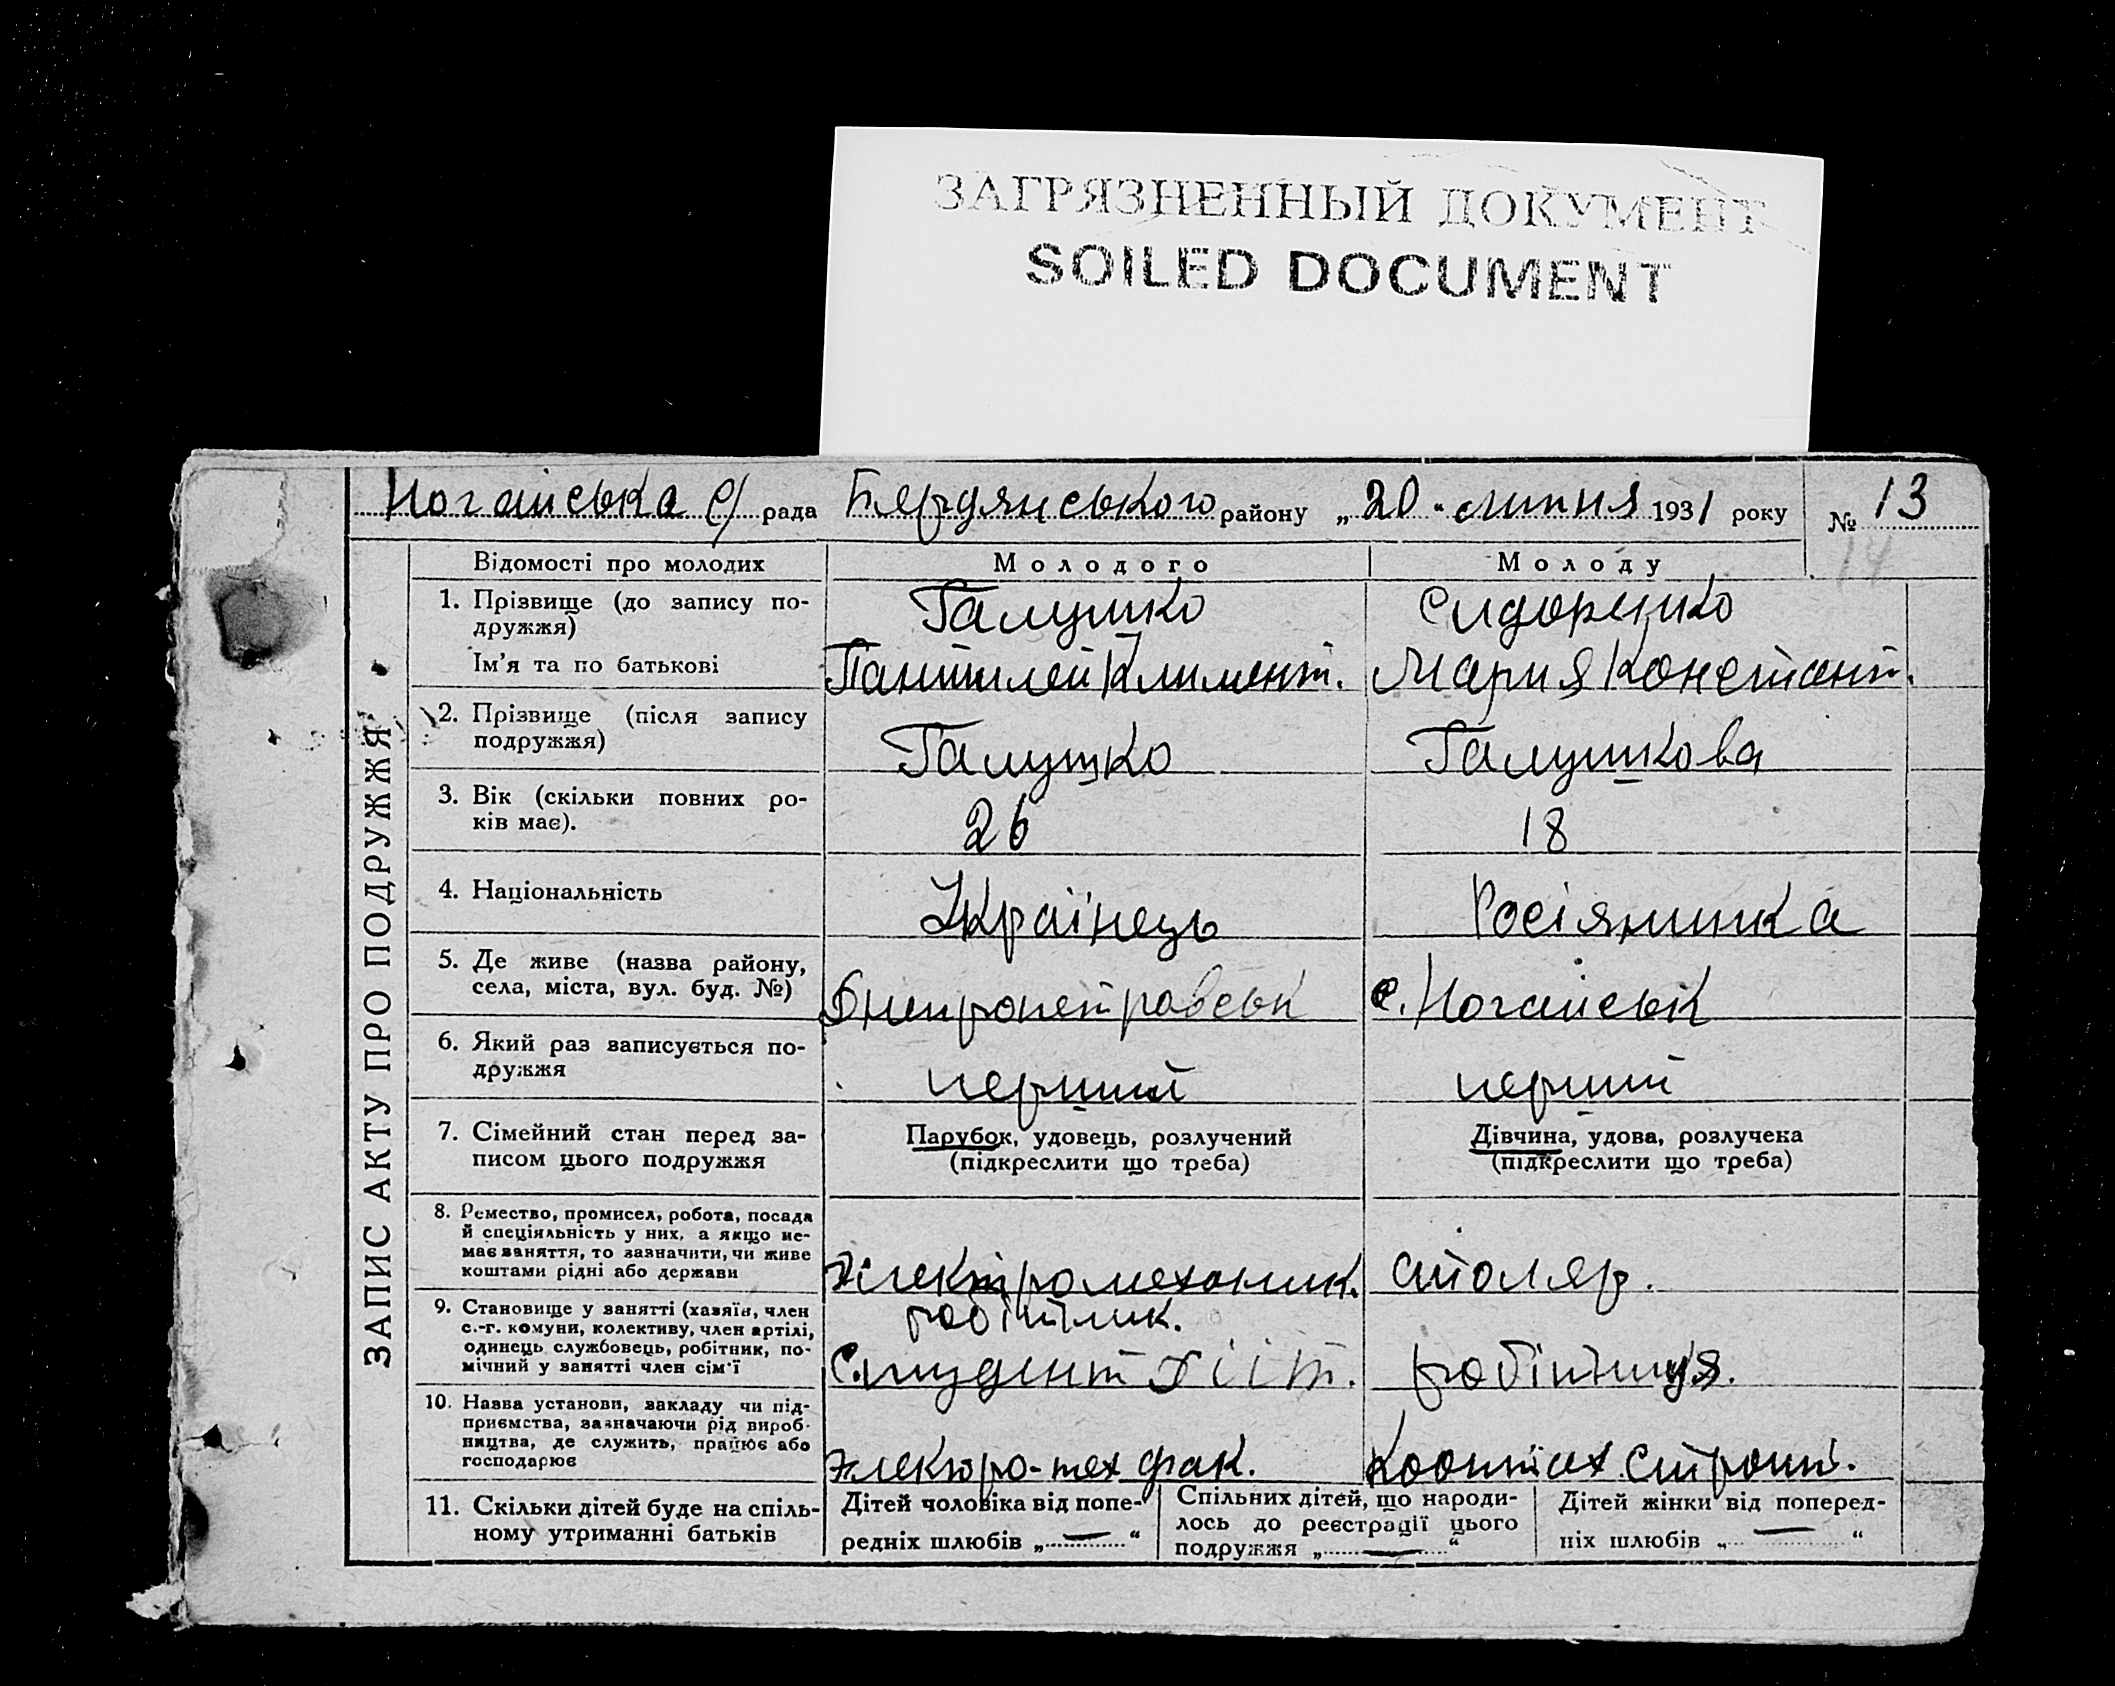 ЗАГРЯЗНЕННЫЙ ДОКУМЕНТ
SOILED DOCUMENT
Ногайська с/ рада Бердянського району „20“ липня 1931 року № 13
14
ЗАПИС АКТУ ПРО ПОДРУЖЖЯ
Відомості про молодих
Молодого
Молоду
1. Прізвище (до запису по-
дружжя)
Галушко
Сидоренко
Ім'я та по батькові
Пантилей Климент.
Мария Констант.
2. Прізвище (після запису
подружжя)
Галушко
Галушкова
3. Вік (скільки повних ро-
ків має).
26
18
4. Національність
Українець
Росіянинка
5. Де живе (назва району,
села, міста, вул. буд. №)
Днипропетровськ
с. Ногайськ
6. Який раз записується по-
дружжя
перший
перший
7. Сімейний стан перед за-
писом цього подружжя
Парубок, удовець, розлучений
(підкреслити що треба)
Дівчина, удова, розлучека
(підкреслити що треба)
8. Ремество, промисел, робота, посада
й спеціяльність у них, а якщо не-
має заняття, то зазначити, чи живе
коштами рідні або держави
Электромеханик.
столяр.
9. Становище у занятті (хазяїн, член
с.-г. комуни, колективу, член артілі,
одинець службовець, робітник, по-
мічний у занятті член сім'ї
робітник.
Студент
робітниця.
10. Назва установи, закладу чи під-
приємства, зазначаючи рід вироб-
ництва, де служить, працює або
господарює
электро-тех фак.
11. Скільки дітей буде на спіль-
ному утриманні батьків
Дітей чоловіка від попе-
редніх шлюбів „—“
Спільних дітей, що народи-
лось до реєстрації цього
подружжя „—“
Дітей жінки від поперед-
ніх шлюбів „—“